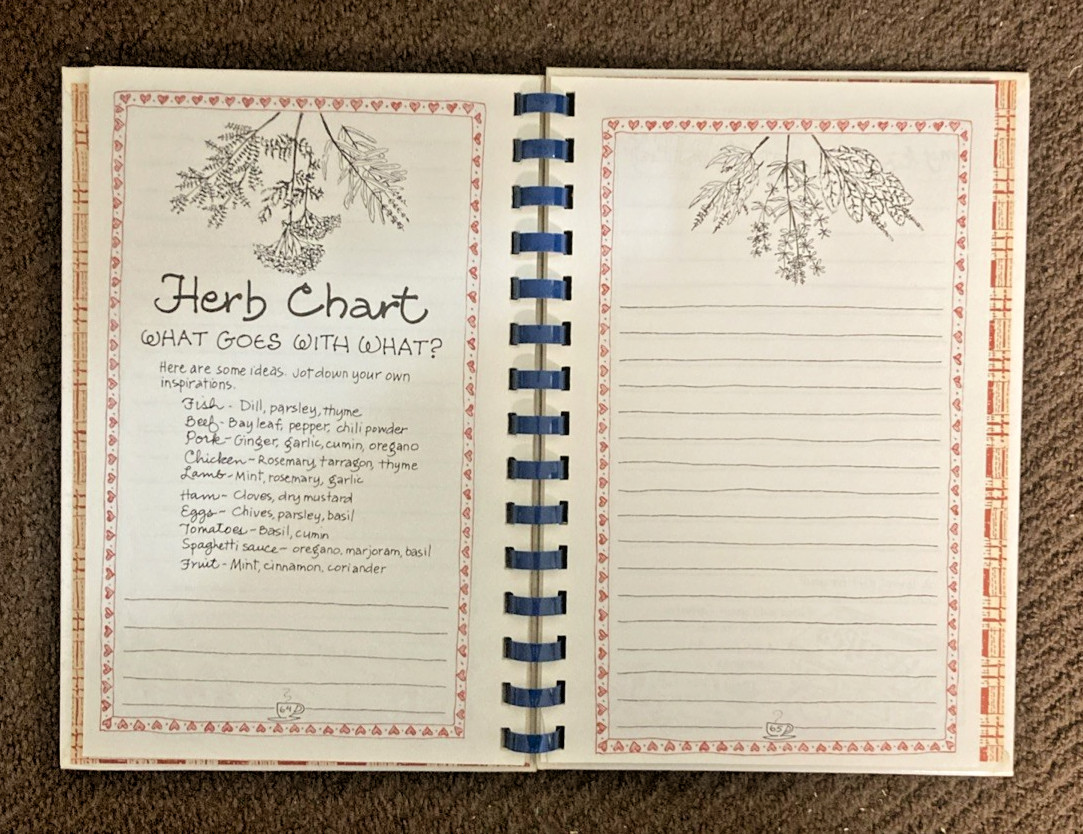 Herb Chart
WHAT GOES WITH WHAT?
Here are some ideas. Jot down your own
inspirations.
Fish - Dill, parsley, thyme
Beef - Bay leaf, pepper, chili powder
Pork - Ginger, garlic, cumin, oregano
Chicken - Rosemary, tarragon, thyme
Lamb - Mint, rosemary, garlic
Ham - Cloves, dry mustard
Eggs - Chives, parsley, basil
Tomatoes - Basil, cumin
Spaghetti sauce - oregano, marjoram, basil
Fruit - Mint, cinnamon, coriander
64
65